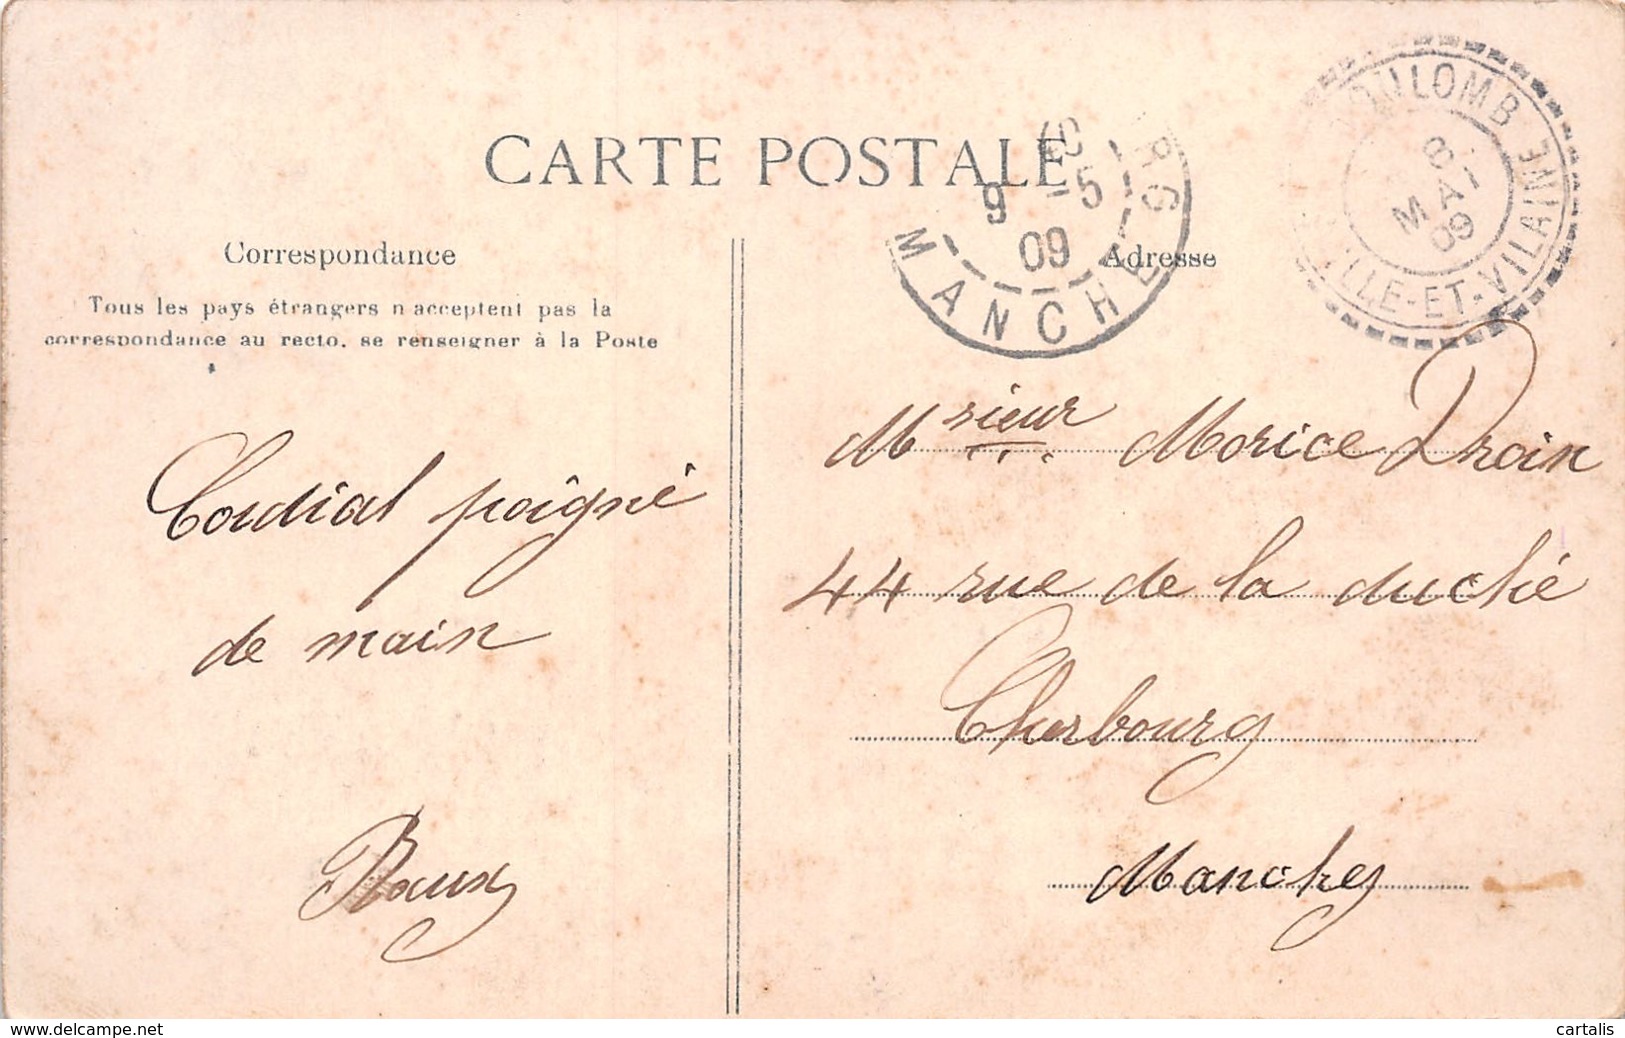 CARTE POSTALE
Correspondance
Adresse
Tous les pays étrangers n'acceptent pas la
correspondance au recto, se renseigner à la Poste
9 -5
09
MANCHE
8
MAI
09
ILLE-ET-VILAINE
Cordial poigné
de main
Roux
Msieur Morice Droin
44 rue de la duché
Cherbourg
Manche
www.delcampe.net
cartalis